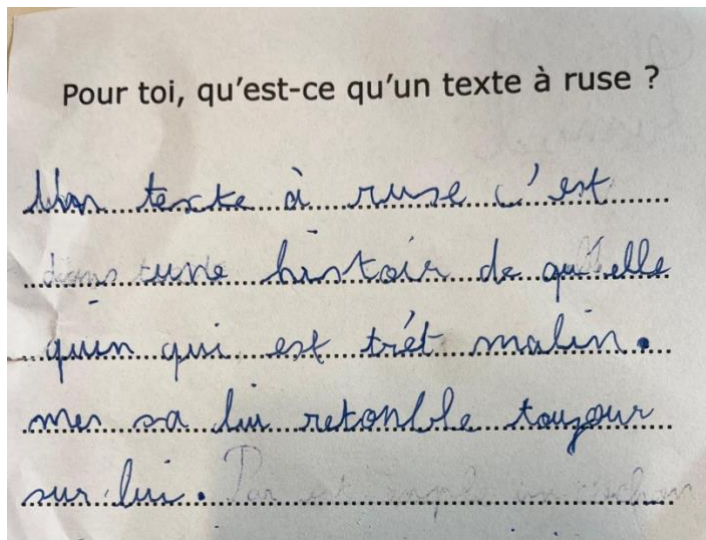 Pour toi, qu'est-ce qu'un texte à ruse ?
Un texte à ruse c'est
une histoir de quelle
quun qui est trét malin.
mes sa lui retonble toujour
sur lui. Par